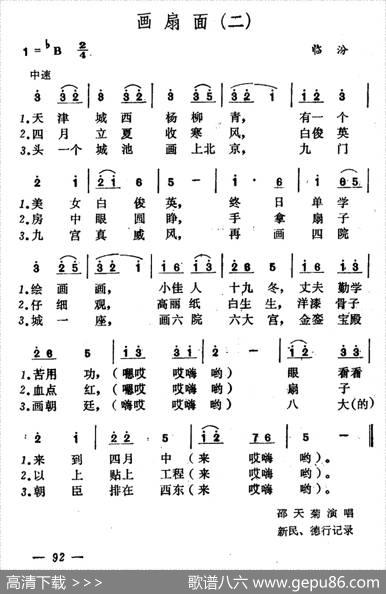 画扇面(二)
1=♭B 2/4 临汾
中速
1.天津城西杨柳青，有一个
2.四月立夏收寒风，白俊英
3.头一个城池画上北京，九门
1.美女白俊英，终日单学
2.房中眼圆睁，手拿扇子
3.九宫真威风，再画四院
1.绘画画，小佳人十九冬，丈夫勤学
2.仔细观，高丽纸白生生，洋漆骨子
3.城一座，画六院六大宫，金銮宝殿
1.苦用功，(嗯哎哎嗨哟)眼看看
2.血点红，(嗯哎哎嗨哟)扇子
3.画朝廷，(嗨哎哎嗨哟)八大(的)
1.来到四月中(来哎嗨哟)。
2.以上贴上工程(来哎嗨哟)。
3.朝臣排在西东(来哎嗨哟)。
邵天菊演唱
新民、德行记录
— 92 —
高清下载 >>> 歌谱八六 www.gepu86.com